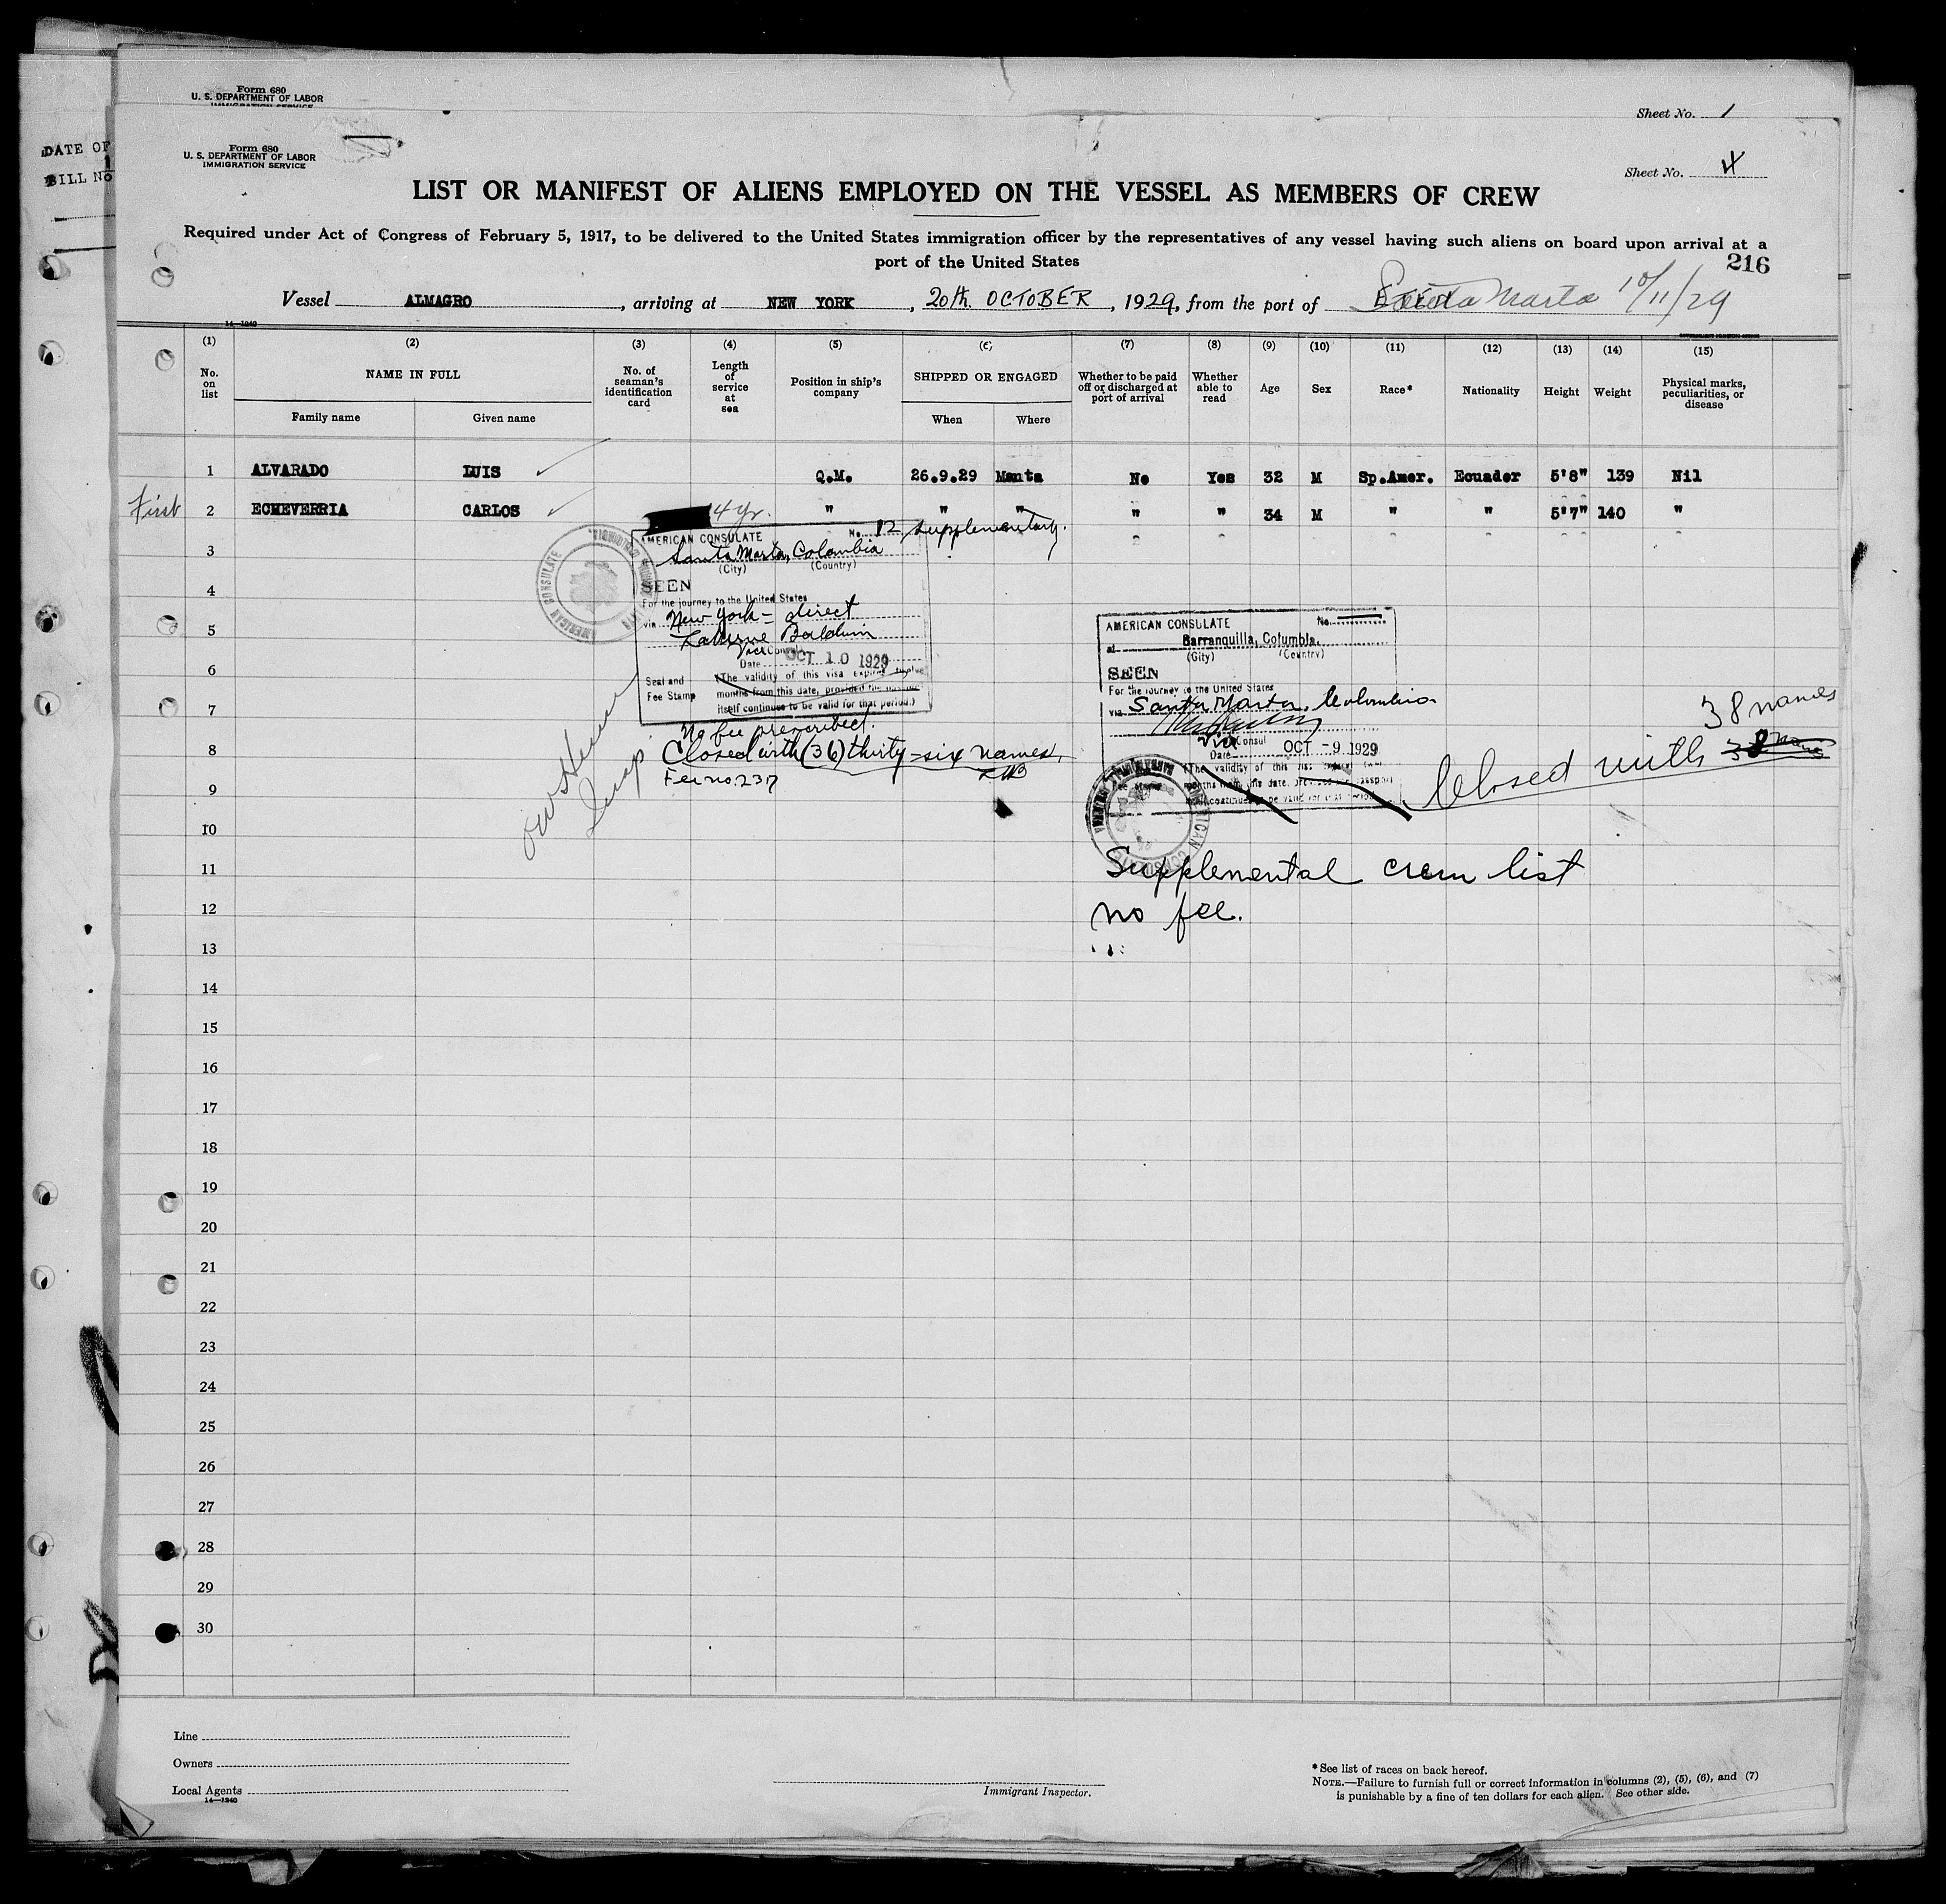 Form 680
U. S. DEPARTMENT OF LABOR
IMMIGRATION SERVICE
Sheet No. 1
DATE OF
BILL No
Form 680
U. S. DEPARTMENT OF LABOR
IMMIGRATION SERVICE
Sheet No. 4
LIST OR MANIFEST OF ALIENS EMPLOYED ON THE VESSEL AS MEMBERS OF CREW
Required under Act of Congress of February 5, 1917, to be delivered to the United States immigration officer by the representatives of any vessel having such aliens on board upon arrival at a
port of the United States
216
Vessel ALMAGRO, arriving at NEW YORK, 20th. OCTOBER, 1929, from the port of Santa Marta 10/11/29
14—1240
(1) (2) (3) (4) (5) (6) (7) (8) (9) (10) (11) (12) (13) (14) (15)
No. on list
NAME IN FULL
Family name
Given name
No. of seaman's identification card
Length of service at sea
Position in ship's company
SHIPPED OR ENGAGED
When
Where
Whether to be paid off or discharged at port of arrival
Whether able to read
Age
Sex
Race*
Nationality
Height
Weight
Physical marks, peculiarities, or disease
1 ALVARADO LUIS Q.M. 26.9.29 Manta No Yes 32 M Sp.Amer. Ecuador 5'8" 139 Nil
First 2 ECHEVERRIA CARLOS 4 yr. " " " " " 34 M " " 5'7" 140 "
3
4
5
6
7
8
9
10
11
12
13
14
15
16
17
18
19
20
21
22
23
24
25
26
27
28
29
30
AMERICAN CONSULATE No. 12 supplementary.
Santa Marta, Colombia
(City) (Country)
SEEN
For the journey to the United States
via New York - direct
Baldwin
Vice Consul
Date OCT 10 1929
Seal and Fee Stamp
(The validity of this visa expires twelve
months from this date, provided the passport
itself continues to be valid for that period.)
No fee prescribed.
Closed with (36) thirty-six names.
Fee no. 237
AMERICAN CONSULATE
AMERICAN CONSULATE No.
at Barranquilla, Columbia.
(City) (Country)
SEEN
For the journey to the United States
via Santa Marta, Colombia
Vice Consul
Date OCT -9 1929
(The validity of this
months from this date,
continues to be valid for that period.)
Closed with
38 names
Supplemental crew list
no fee.
Line
Owners
Local Agents
14—1240
Immigrant Inspector.
*See list of races on back hereof.
NOTE.—Failure to furnish full or correct information in columns (2), (5), (6), and (7)
is punishable by a fine of ten dollars for each alien. See other side.